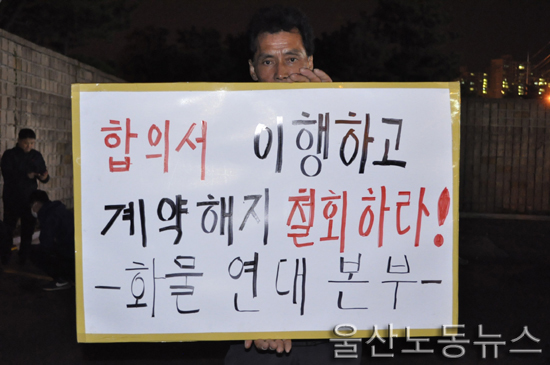 합의서 이행하고
계약해지 철회하라!
-화물 연대 본부-
울산노동뉴스